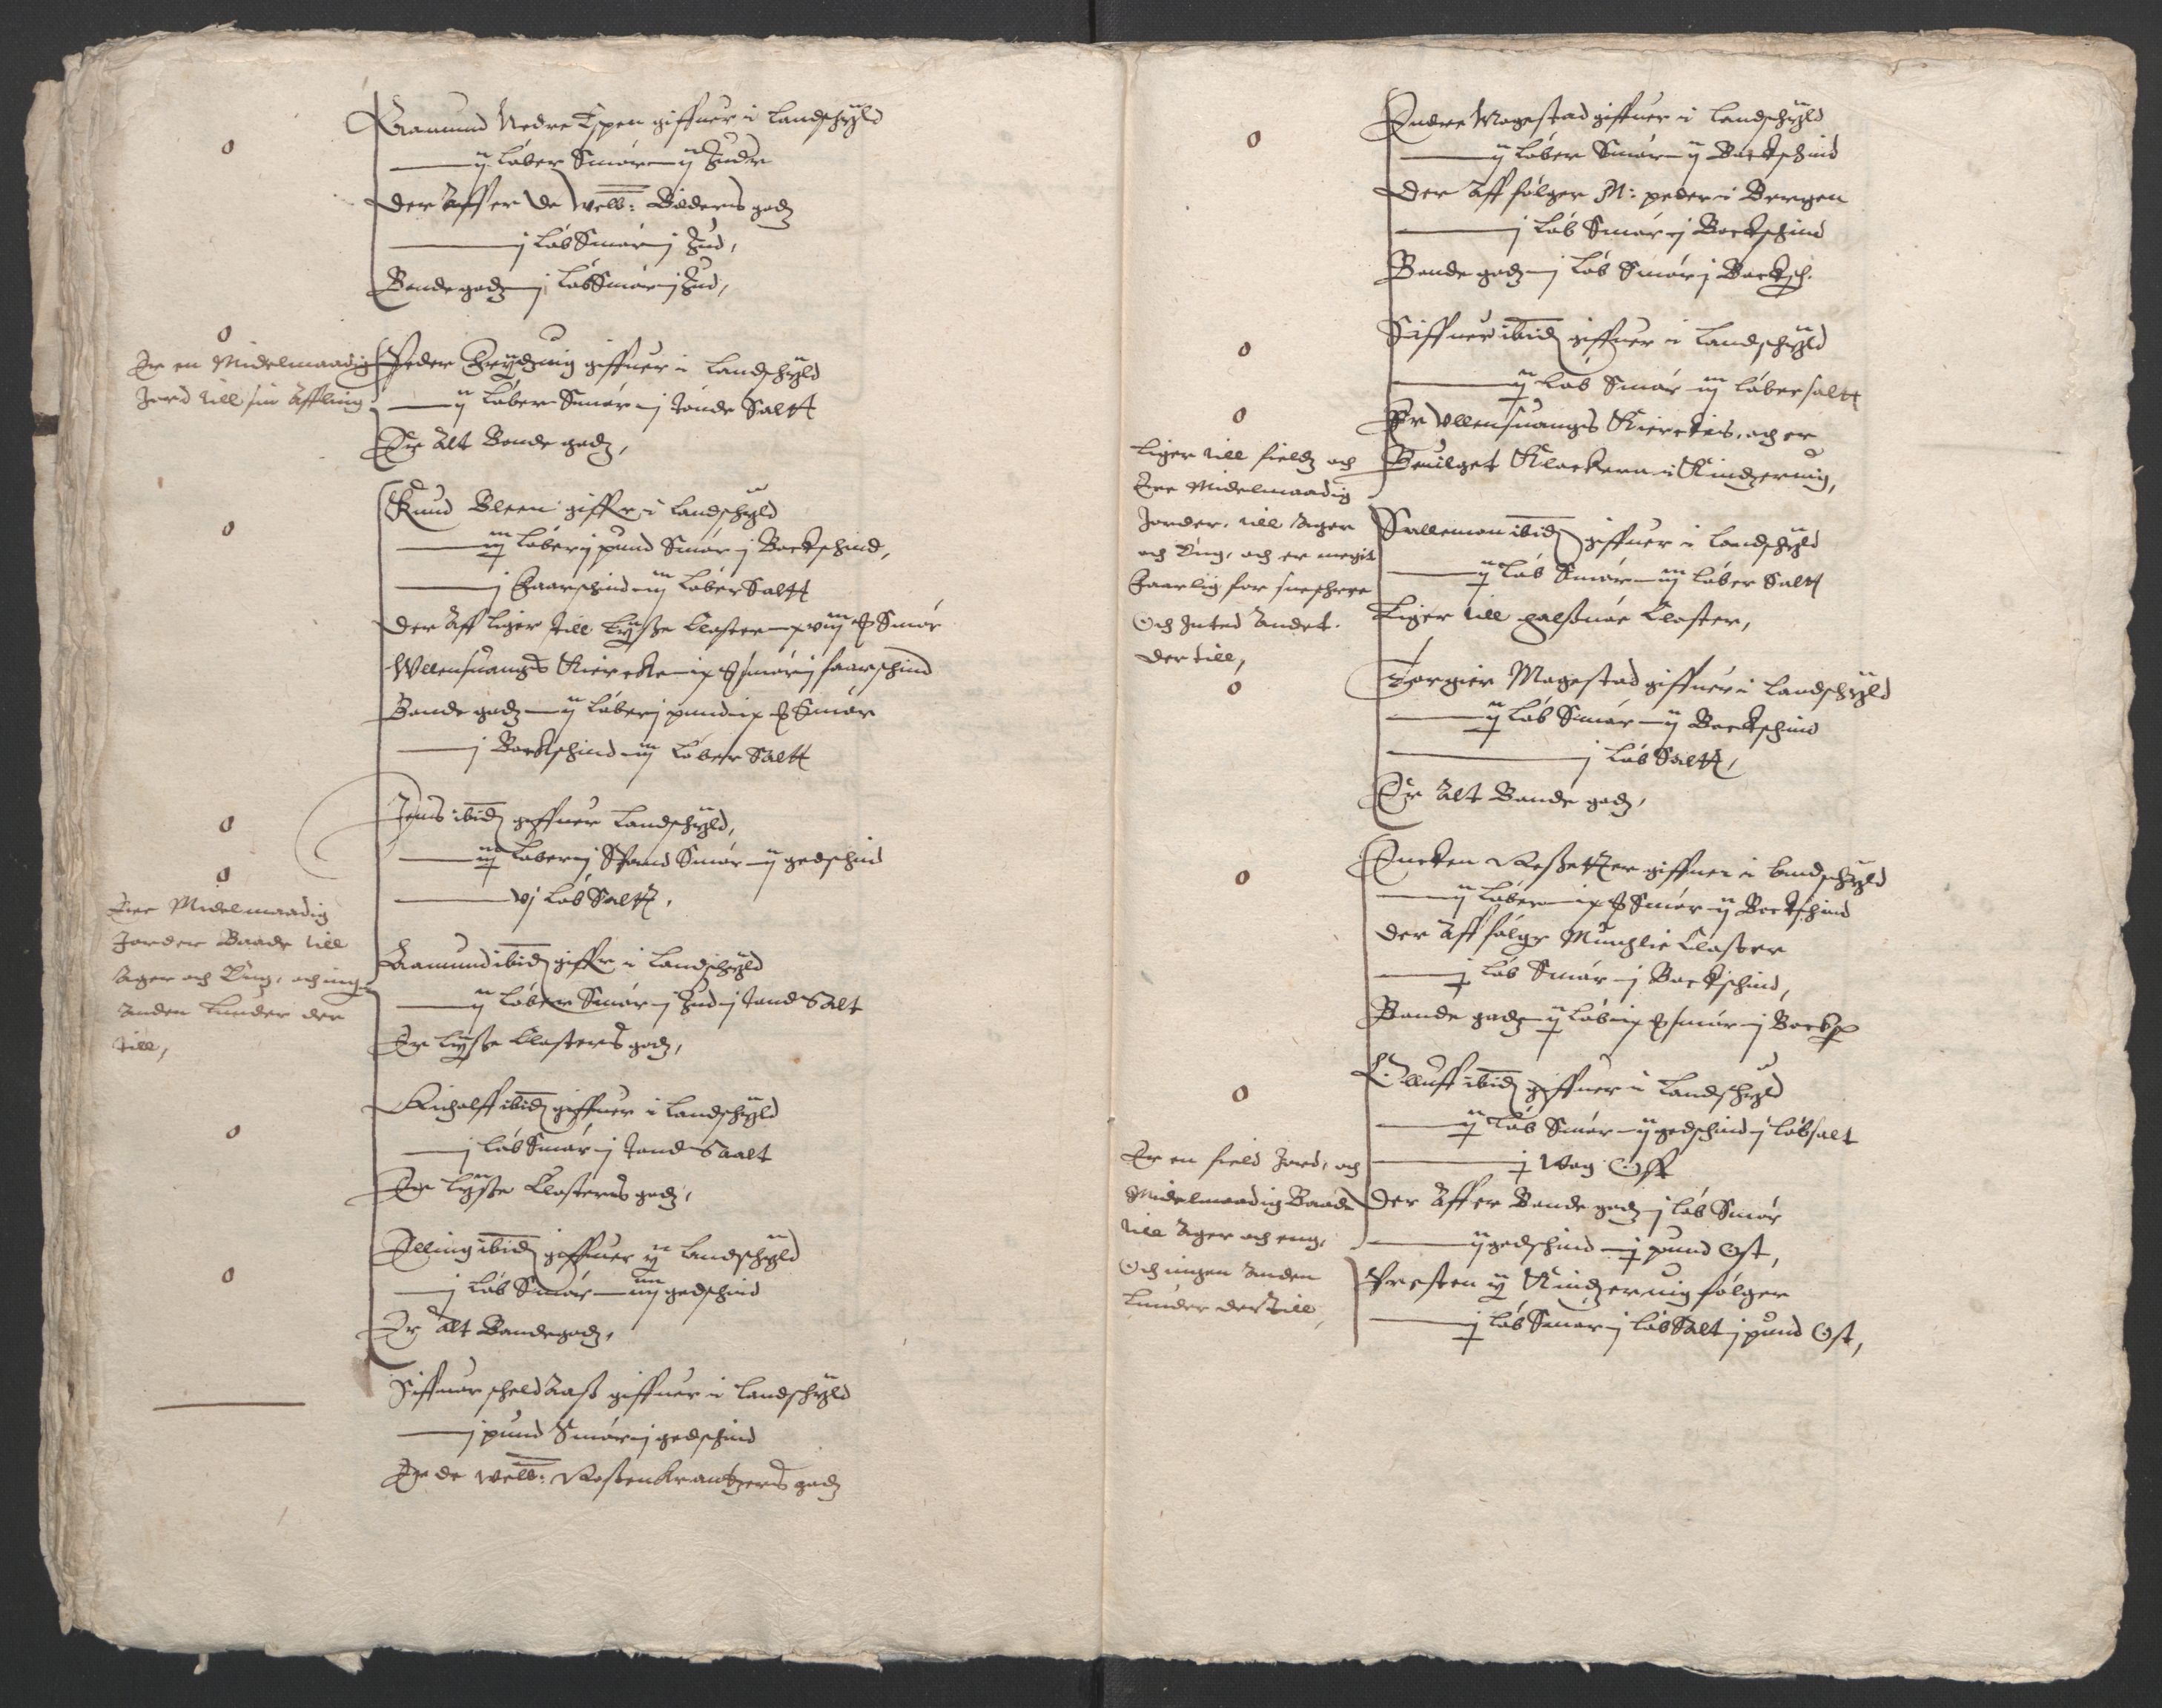 Aamund Nedre Espen giffuer i Landschyld
ij Løber Smør ij Huder
der Aff er de Welb: Bilders godz
j Løb Smør j Hud,
Bonde godz j Løb Smør j Hud,
Er en Midelmaadig
Jord till sin Affling
Peder giffuer i Landschyld
ij Løber Smør j tønde Saltt
Er Alt Bonde godz,
Knud Bleen giffr i Landschyld
Løber j pund Smør j Bockschind,
j Faarschind iij Løber Saltt
der Aff liger till Lysse Closter xviij Smør
Wllensuangs Kiercke ix smør j faarschind
Bonde godz ij Løber j pund ix Smør
j Bockschind iij Løber Saltt
Jens ibid giffuer Landschyld,
Løber j Spand Smør ij gedschind
vj Løb Saltt,
Ere Midelmaadig
Jorder Baade till
Ager och Eng, och ingen
Anden Lunder der
till,
Aamund ibid giffr i Landschyld
ij Løber Smør j Hud j tønd Salt
Er Lysse Closters godz,
Richolff ibid giffuer i Landschyld
j Løb Smør j tønd Saalt
Er Lysse Closters godz,
Elling ibid giffuer y Landschyld
j Løb Smør iiij gedschind
Er Alt Bonde godz,
Siffuar giffuer i Landschyld
j pund Smør j gedschind
Er de welb: Rossenkrantzers godz
Endre Magestad giffuer i Landschyld
ij Løber Smør ij Bockschind
der Aff følger M: peder i Bergen
j Løb Smør j Bockschind
Bonde godz j Løb Smør j Bocksch.
Siffuer ibid giffuer i Landschyld
Løb Smør iij Løber saltt
Er Vllensuangs Kierckis, och er
Beuilget Klockeren i Kindzeruig,
Liger till fieldz och
Ere Midelmaadig
Jorder, till Ager
och Eng, och er megit
Faarlig for sneschree
Och Inted Andet
der till,
Sallemon ibid giffuer i Landschyld
Løb Smør iij Løber Saltt
Liger till Halsnøe Closter,
Torgier Magestad giffuer i Landschyld
Løb Smør ij Bockschind
j Løb Saltt,
Er Alt Bonde godz,
giffuer i landschyld
ij Løber ix Smør ij Bockschind
der Aff følger Munchlie Closter
Løb Smør j Bockschind,
Bonde godz Løb ix smør j Bocksch
Olluff ibid giffuer i Landschyld
Løb Smør ij gedschind j Løb salt
Wog Ost
Er en field Jord, och
Midelmaadig Baade
till Ager och eng,
Och ingen Anden
Lunder der till,
der Aff er Bonde godz j Løb Smør
ij gedschind pund Ost,
Presten y Kindzeruig følger
Løb Smør j Løb Salt j pund Ost,